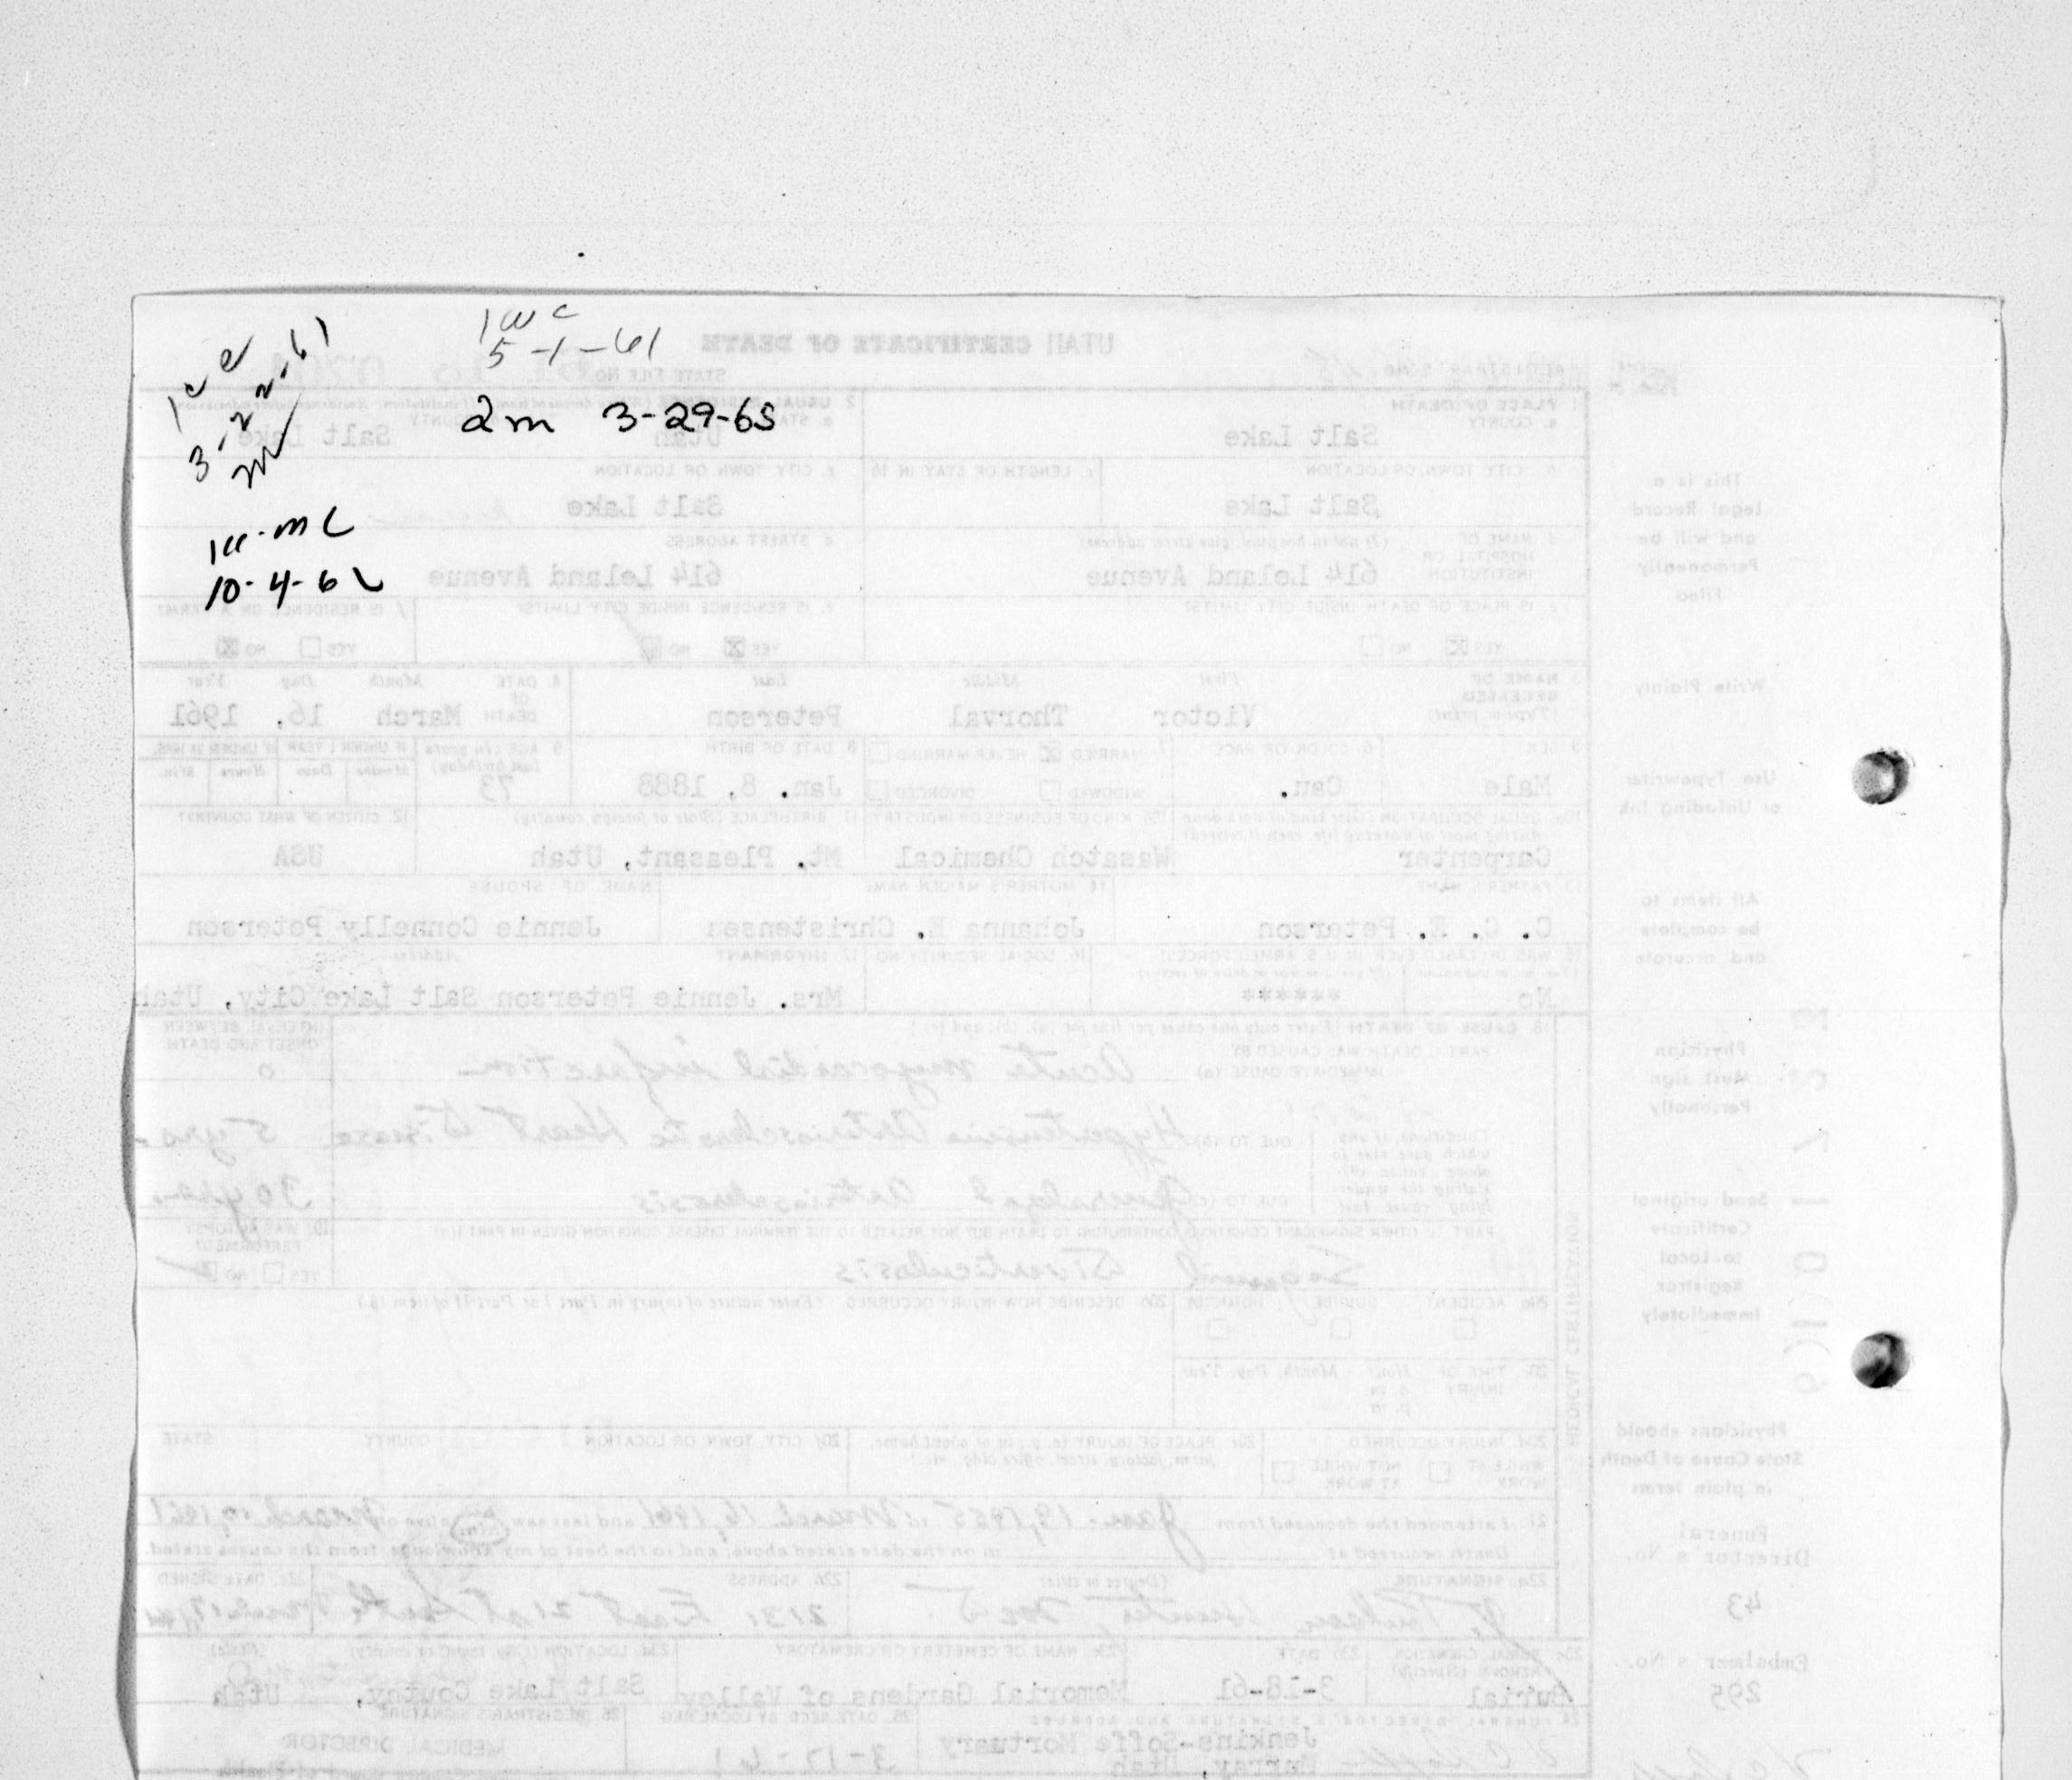 1cc
3-22-61
1wc
5-1-61
2m 3-29-65
10-4-62
UTAH CERTIFICATE OF DEATH
STATE FILE NO.
1 PLACE OF DEATH
a. COUNTY
Salt Lake
2 USUAL RESIDENCE
Utah
COUNTY
Salt Lake
b. CITY TOWN, OR LOCATION
Salt Lake
c. LENGTH OF STAY IN 1b
c. CITY TOWN OR LOCATION
Salt Lake
d. NAME OF HOSPITAL OR INSTITUTION
(If not in hospital, give street address)
614 Leland Avenue
d STREET ADDRESS
614 Leland Avenue
e IS PLACE OF DEATH INSIDE CITY LIMITS?
YES NO
e. IS RESIDENCE INSIDE CITY LIMITS?
YES NO
f IS RESIDENCE ON A FARM?
YES NO
3 NAME OF DECEASED
(Type or print)
First Middle Last
Victor Thorval Peterson
4. DATE OF DEATH
Month Day Year
March 16, 1961
5 SEX
Male
6 COLOR OR RACE
Cau.
7 MARRIED NEVER MARRIED
WIDOWED DIVORCED
8 DATE OF BIRTH
Jan. 8, 1888
9 AGE (In years last birthday)
73
IF UNDER 1 YEAR IF UNDER 24 HRS.
Months Days Hours Min.
10a USUAL OCCUPATION (Give kind of work done during most of working life, even if retired)
Carpenter
10b KIND OF BUSINESS OR INDUSTRY
Wasatch Chemical
11 BIRTHPLACE (State or foreign country)
Mt. Pleasant, Utah
12. CITIZEN OF WHAT COUNTRY?
USA
13 FATHER'S NAME
C. C. E. Peterson
14 MOTHER'S MAIDEN NAME
Johanna E. Christensen
NAME OF SPOUSE
Jennie Connelly Peterson
15 WAS DECEASED EVER IN U.S. ARMED FORCES?
No
******
16. SOCIAL SECURITY NO
17 INFORMANT Address
Mrs. Jennie Peterson Salt Lake City, Utah
18 CAUSE OF DEATH (Enter only one cause per line for (a), (b), and (c).)
INTERVAL BETWEEN ONSET AND DEATH
PART I DEATH WAS CAUSED BY
IMMEDIATE CAUSE (a)
Acute myocardial infarction
0
Conditions, if any, which gave rise to above cause (a), stating the underlying cause last
DUE TO (b)
Hypertensive Arteriosclerotic Heart Disease 5 yrs.
DUE TO (c)
Generalized Arteriosclerosis 30 yrs.
PART II OTHER SIGNIFICANT CONDITIONS CONTRIBUTING TO DEATH BUT NOT RELATED TO THE TERMINAL DISEASE CONDITION GIVEN IN PART I(a)
Diverticulosis
19. WAS AUTOPSY PERFORMED?
YES NO
20a ACCIDENT SUICIDE HOMICIDE
20b DESCRIBE HOW INJURY OCCURRED (Enter nature of injury in Part I or Part II of item 18.)
20c TIME OF INJURY
Hour Month, Day, Year
a. m.
p. m.
20d INJURY OCCURRED
WHILE AT WORK NOT WHILE AT WORK
20e PLACE OF INJURY (e. g., in or about home, farm, factory, street, office bldg., etc.)
20f CITY, TOWN OR LOCATION COUNTY STATE
MEDICAL CERTIFICATION
21 I attended the deceased from Jan. 19, 1955 to March 16, 1961 and last saw him alive on
Death occurred at m on the date stated above; and to the best of my knowledge, from the causes stated.
22a. SIGNATURE (Degree or title)
22b. ADDRESS
2131 East 21st South
22c. DATE SIGNED
23a BURIAL CREMATION REMOVAL (Specify)
Burial
23b DATE
3-18-61
23c NAME OF CEMETERY OR CREMATORY
Memorial Gardens of Valley
23d. LOCATION (City, town or county) (State)
Salt Lake County, Utah
24 FUNERAL DIRECTOR'S SIGNATURE AND ADDRESS
Jenkins-Soffe Mortuary
Murray, Utah
25. DATE RECD BY LOCAL REG
3-17-61
26. REGISTRAR'S SIGNATURE
MEDICAL DIRECTOR
This is a
Legal Record
and will be
Permanently
Filed
Write Plainly
Use Typewriter
or Unfading Ink
All items to
be complete
and accurate
Physician
Must sign
Personally
Send original
Certificate
to Local
Registrar
Immediately
Physicians should
State Cause of Death
in plain terms
Funeral
Director's No.
43
Embalmer's No.
295